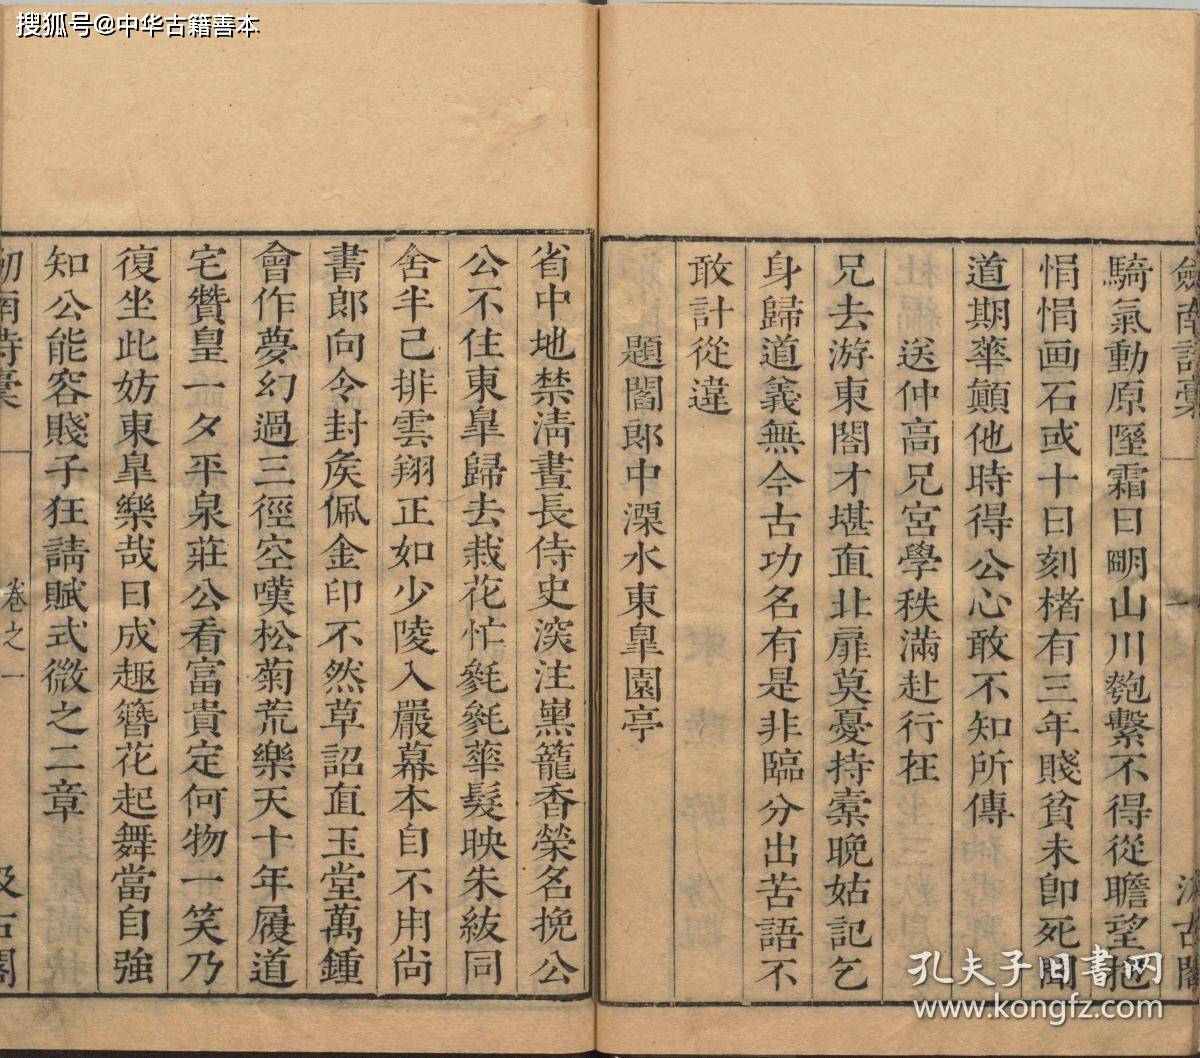 搜狐号@中华古籍善本
劒南詩稾
汲古閣
騎氣動原隰霜日明山川匏繫不得從瞻望抱
悁悁画石或十日刻楮有三年賤貧未即死聞
道期華顛他時得公心敢不知所傳
送仲高兄宮學秩滿赴行在
兄去游東閣才堪直北扉莫憂持橐晚姑記乞
身歸道義無今古功名有是非臨分出苦語不
敢計從違
題閻郎中溧水東皐園亭
省中地禁清晝長侍史深注熏籠香榮名挽公
公不住東皐歸去栽花忙毿毿華髮映朱紱同
舍半已排雲翔正如少陵入嚴幕本自不用尚
書郎向令封矦佩金印不然草詔直玉堂萬鍾
會作夢幻過三徑空嘆松菊荒樂天十年履道
宅贊皇一夕平泉莊公看富貴定何物一笑乃
復坐此妨東皐樂哉日成趣簪花起舞當自強
知公能容賤子狂請賦式微之二章
劒南詩稾
卷之一
汲古閣
孔夫子旧書网
www.kongfz.com